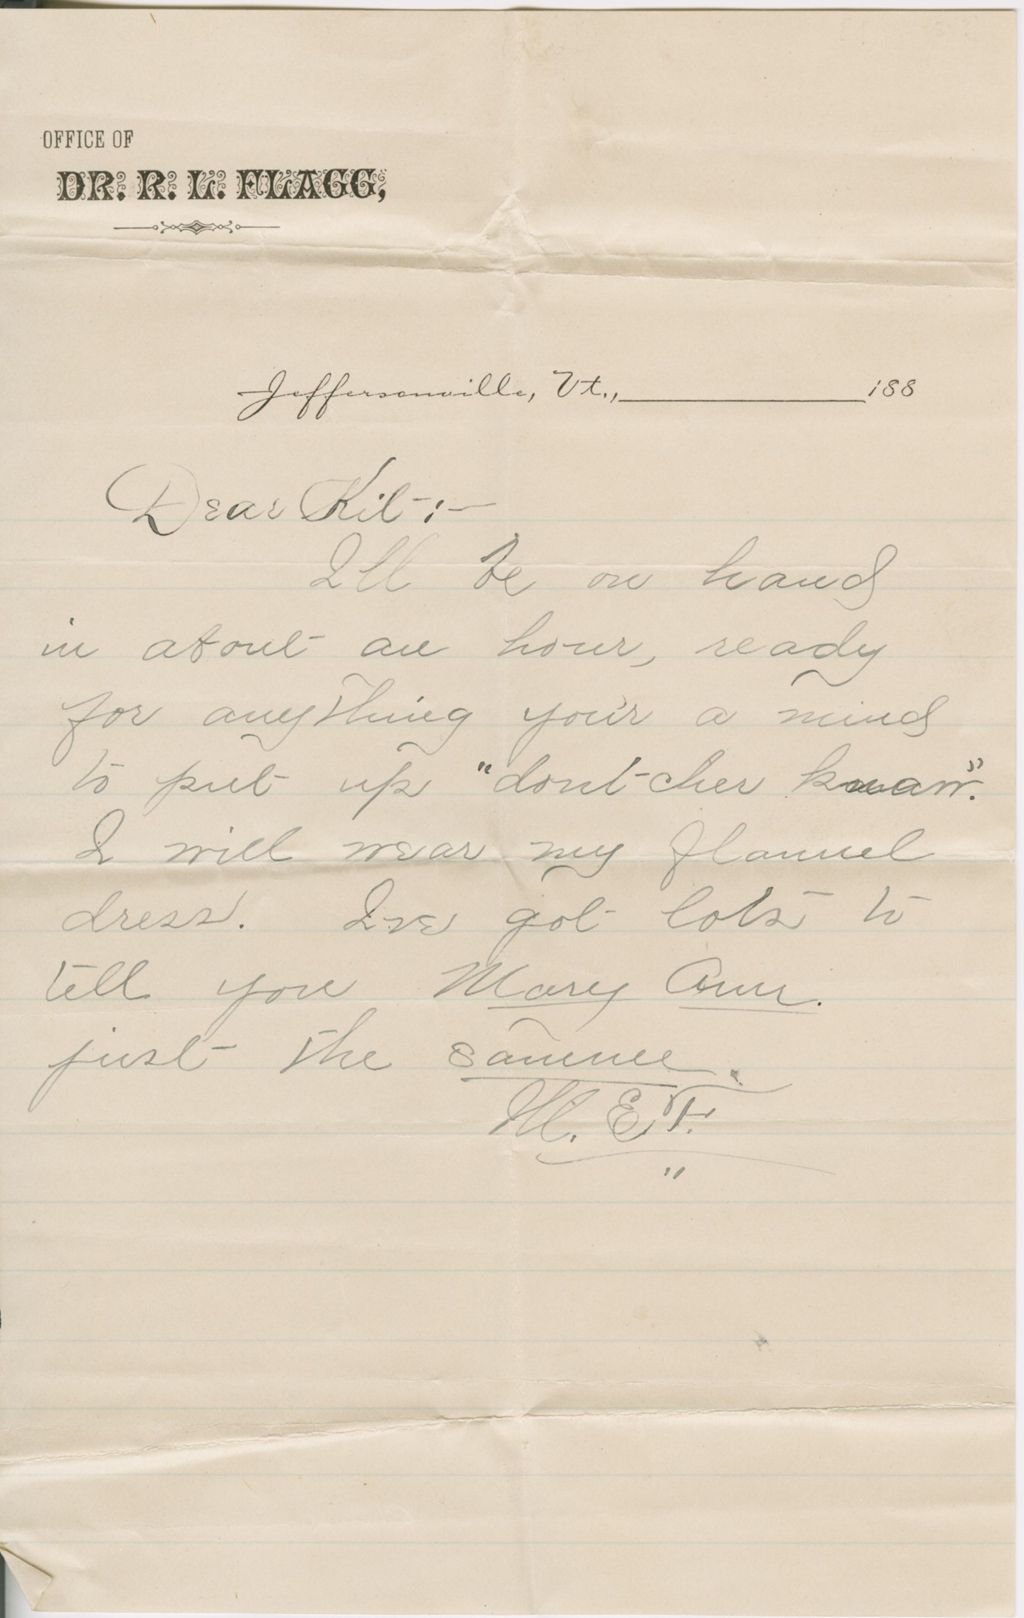 OFFICE OF
DR. R. L. FLAGG,
Jeffersonville, Vt., 188
Dear Kit:-
I'll be on hand
in about an hour, ready
for anything your a mind
to put up "dont cher knaw".
I will wear my flannel
dress. I've got lots to
tell you Mary Ann.
just the samee.
M. E. F.